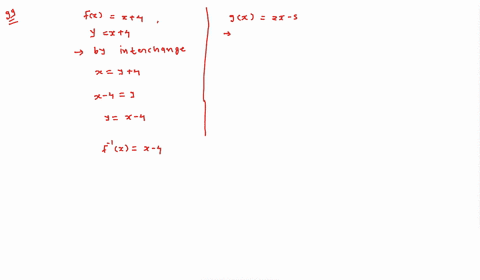 99
f(x) = x+4
y = x+4
→ by interchange
x = y+4
x-4 = y
y = x-4
f⁻¹(x) = x-4
g(x) = 2x-5
→